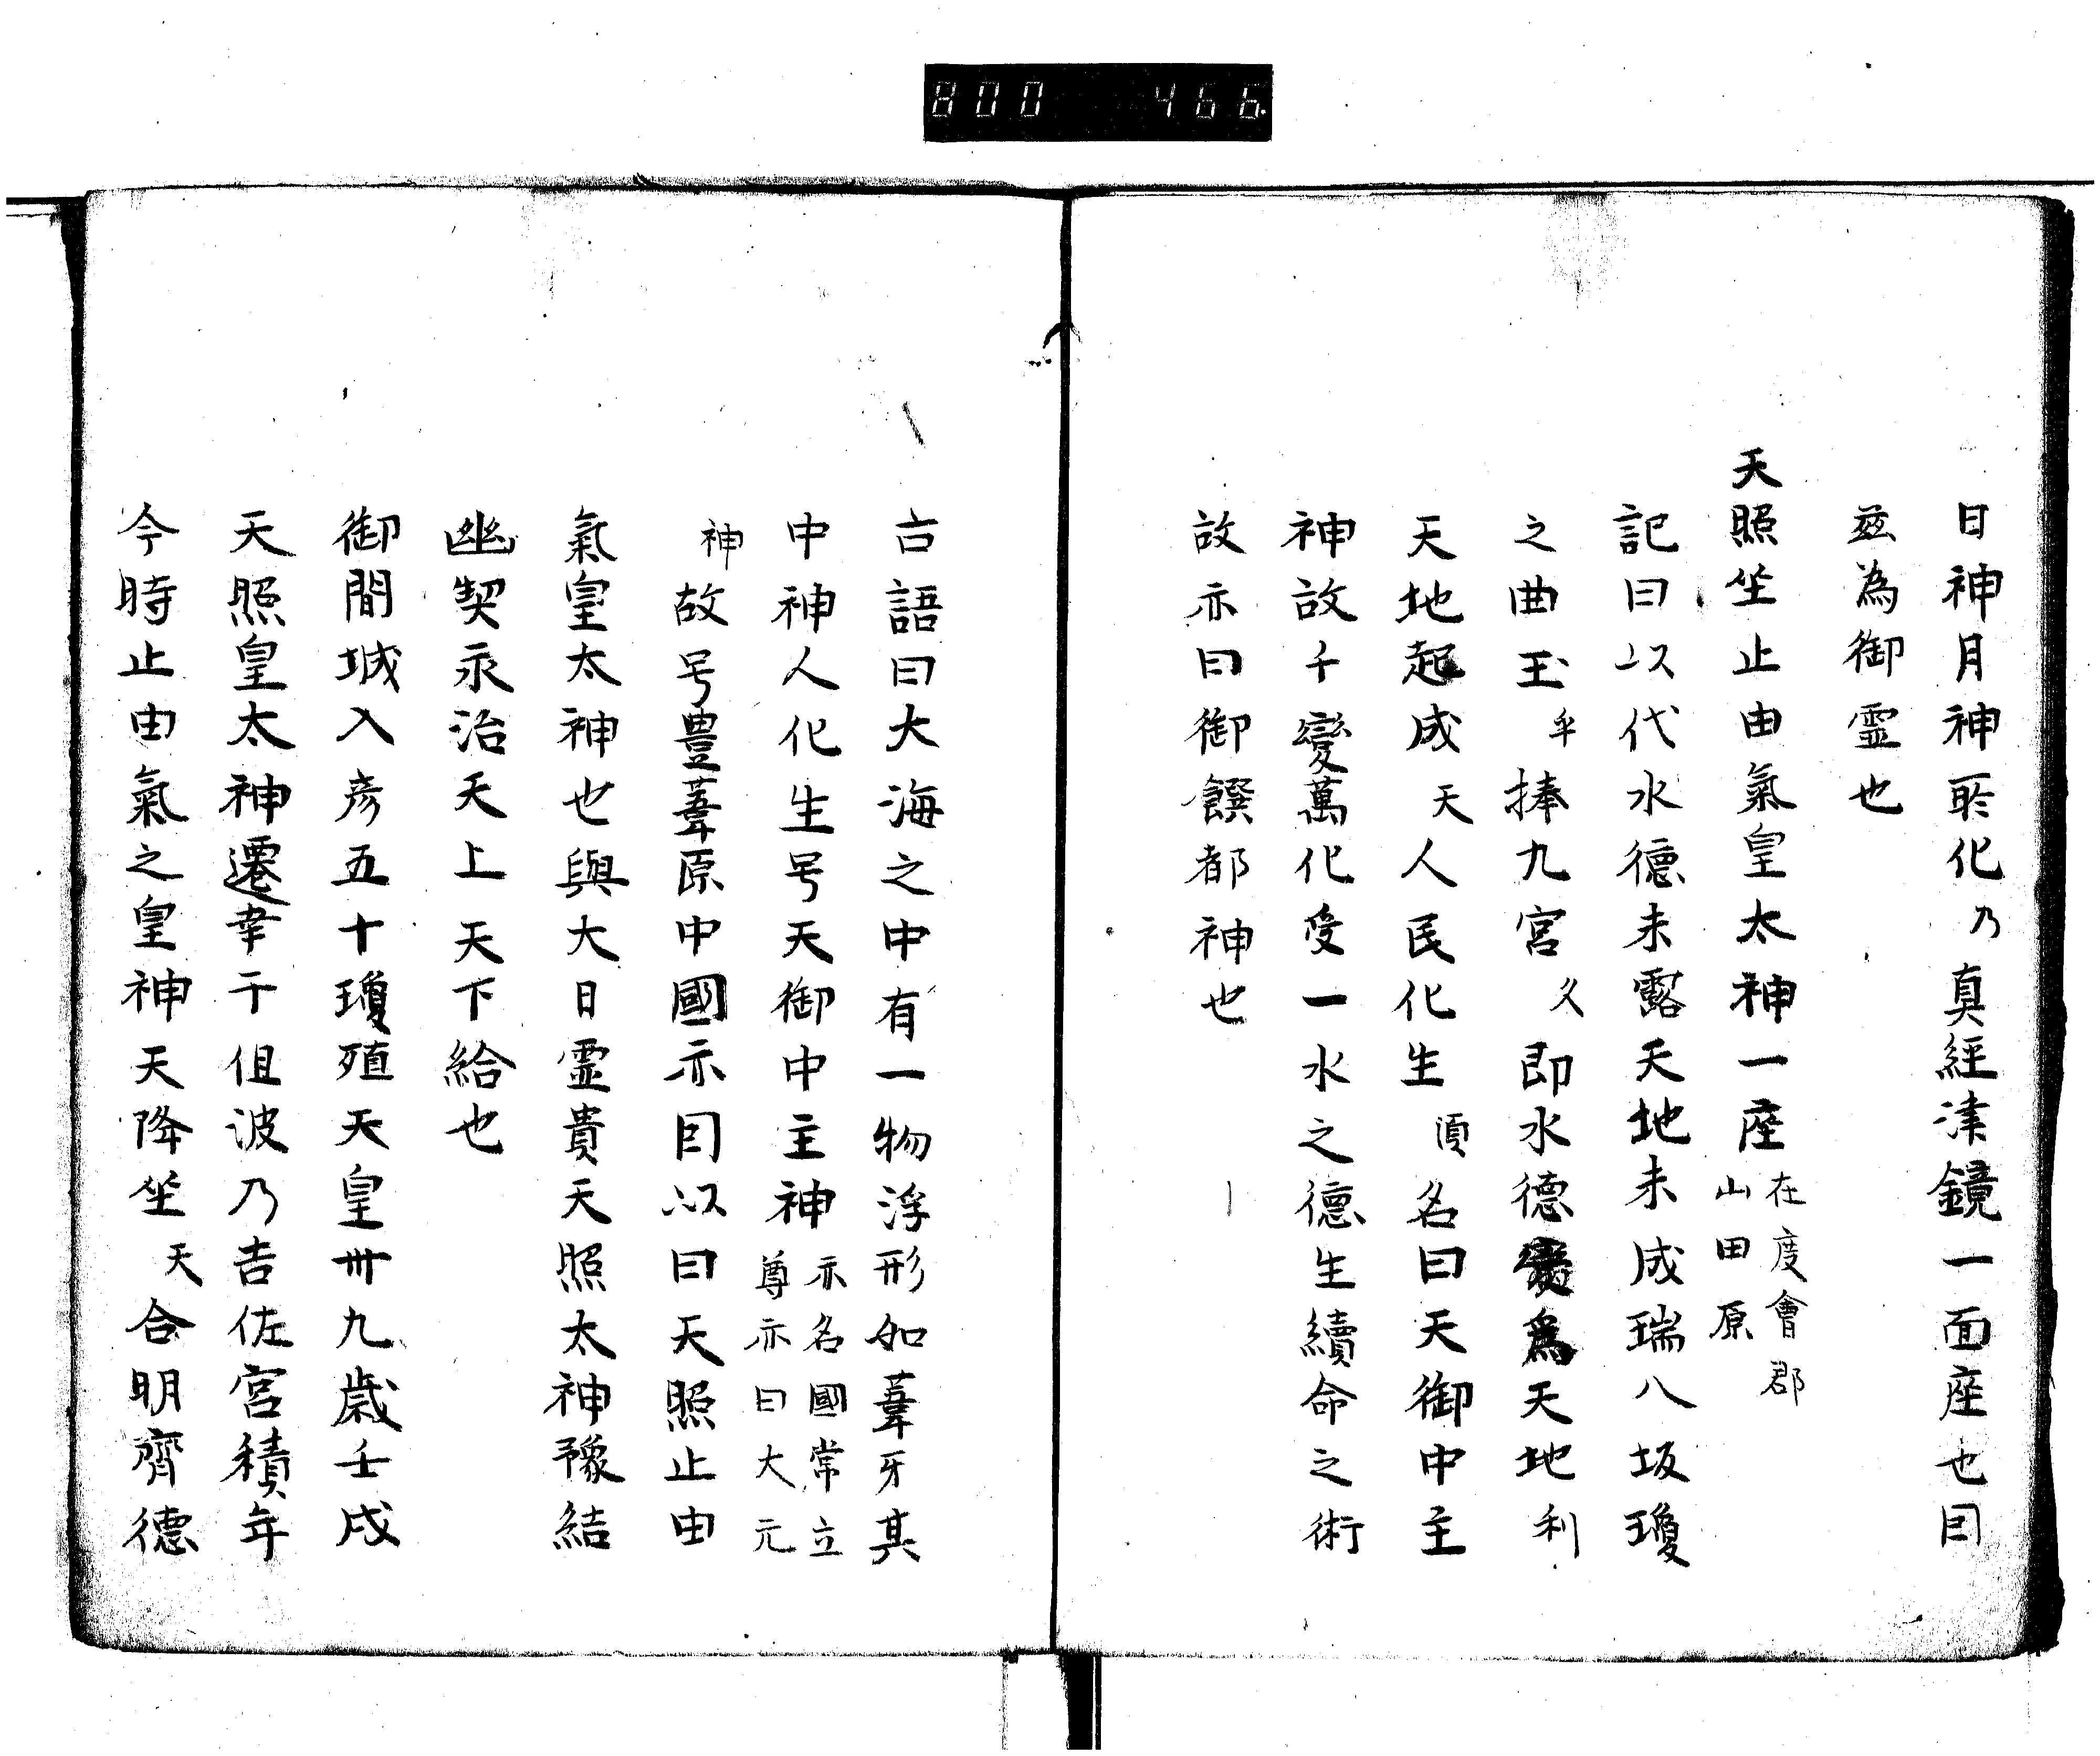 800 466
日神月神所化乃真經津鏡一面座也曰
茲為御霊也
天照坐止由氣皇太神一座在度會郡山田原
記曰以代水德未露天地未成瑞八坂瓊
之曲玉乎捧九宮久即水德變為天地利
天地起成天人民化生須名曰天御中主
神故千變萬化受一水之德生續命之術
故亦曰御饌都神也
古語曰大海之中有一物浮形如葦牙其
中神人化生号天御中主神亦名國常立尊亦曰大元
神故号豊葦原中國亦因以曰天照止由
氣皇太神也與大日霊貴天照太神豫結
幽契永治天上天下給也
御間城入彦五十瓊殖天皇卅九歳壬戌
天照皇太神遷幸干但波乃吉佐宮積年
今時止由氣之皇神天降坐天合明齊德